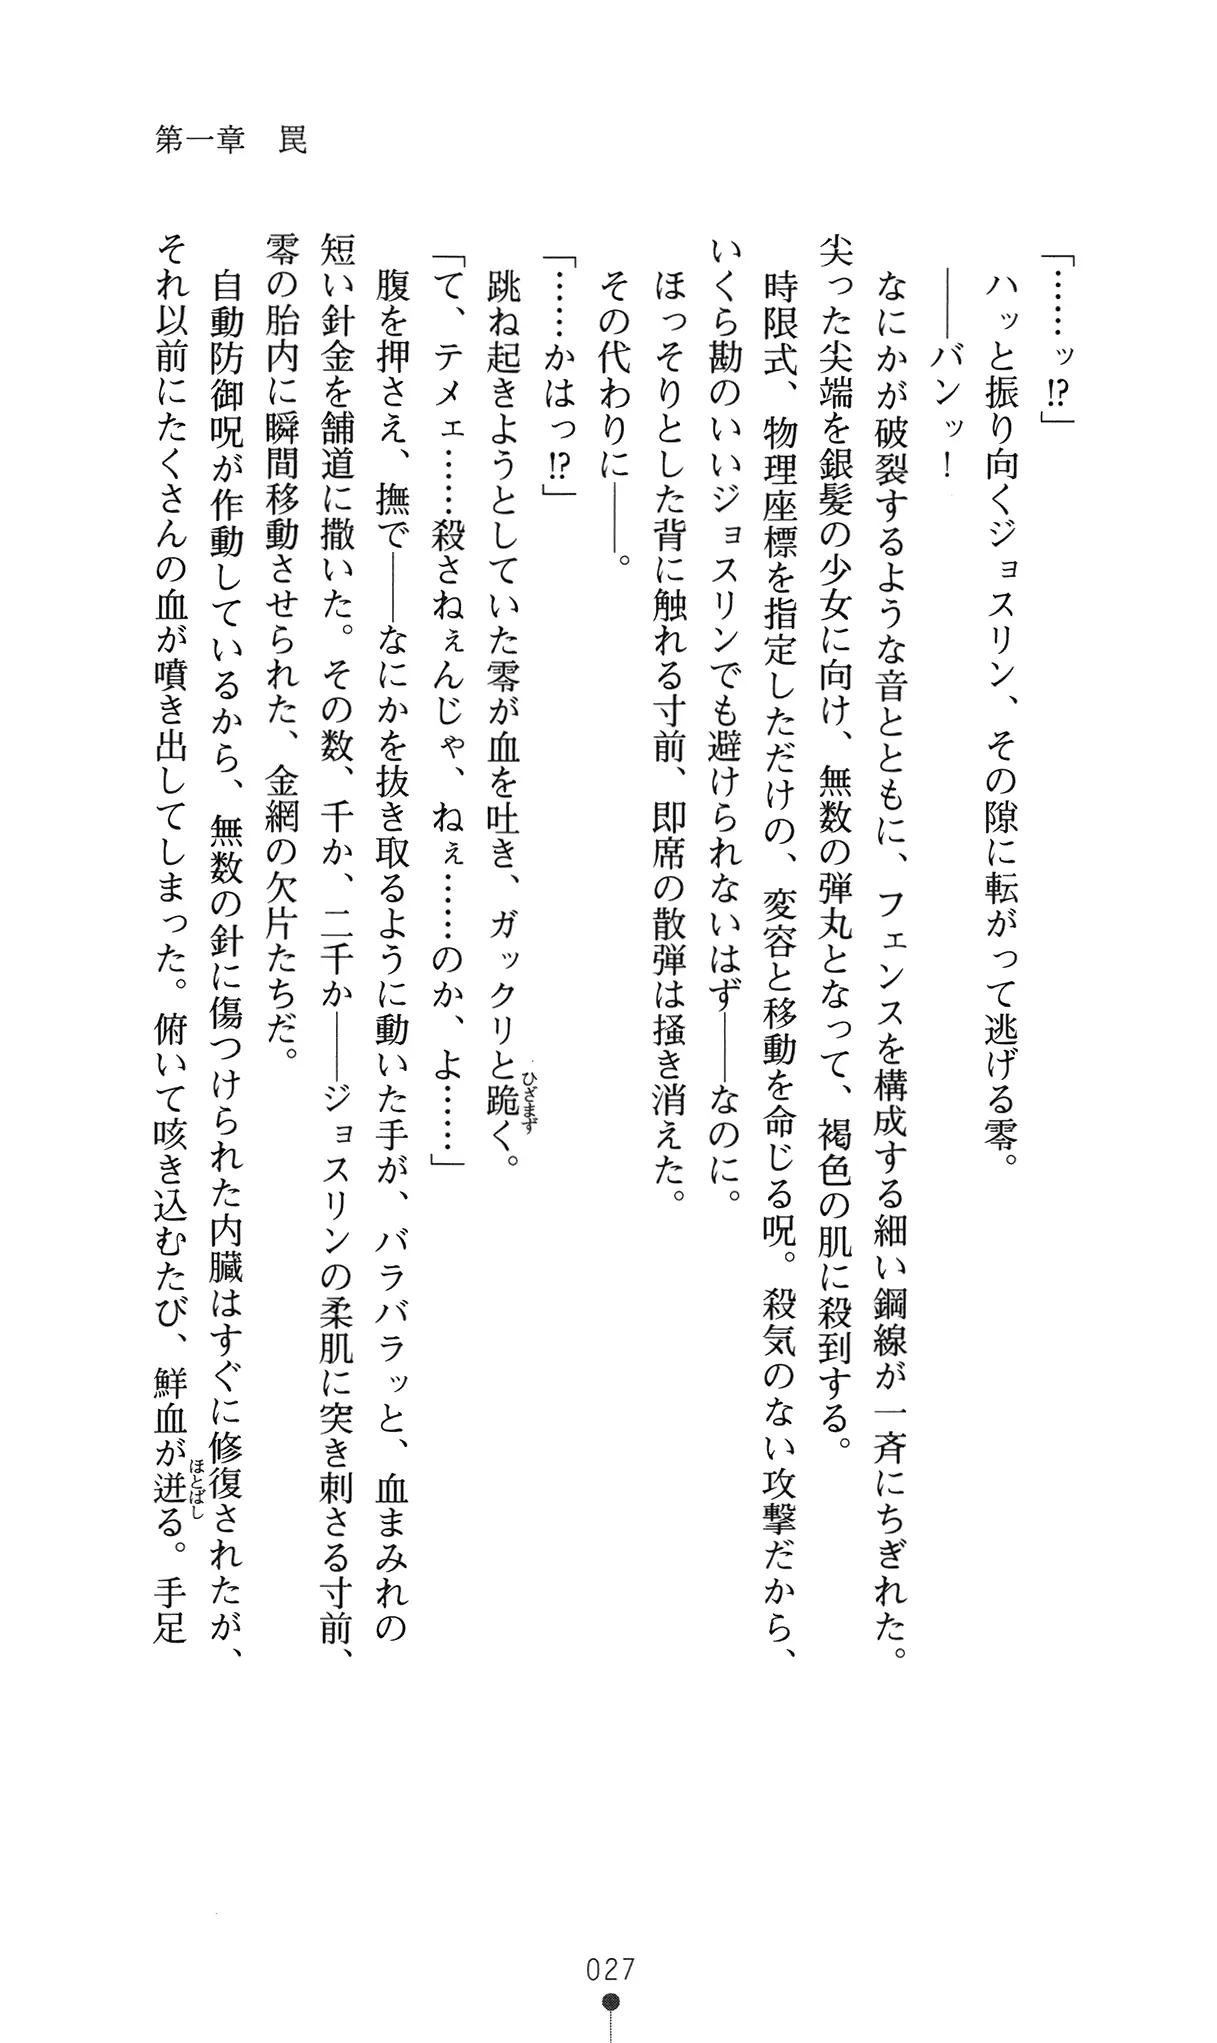 第一章　罠
「……ッ!?」
ハッと振り向くジョスリン、その隙に転がって逃げる零。
――バンッ！
なにかが破裂するような音とともに、フェンスを構成する細い鋼線が一斉にちぎれた。
尖った尖端を銀髪の少女に向け、無数の弾丸となって、褐色の肌に殺到する。
時限式、物理座標を指定しただけの、変容と移動を命じる呪。殺気のない攻撃だから、
いくら勘のいいジョスリンでも避けられないはず――なのに。
ほっそりとした背に触れる寸前、即席の散弾は掻き消えた。
その代わりに――。
「……かはっ!?」
跳ね起きようとしていた零が血を吐き、ガックリと跪く。
ひざまず
「て、テメェ……殺さねぇんじゃ、ねぇ……のか、よ……」
腹を押さえ、撫で――なにかを抜き取るように動いた手が、バラバラッと、血まみれの
短い針金を舗道に撒いた。その数、千か、二千か――ジョスリンの柔肌に突き刺さる寸前、
零の胎内に瞬間移動させられた、金網の欠片たちだ。
自動防御呪が作動しているから、無数の針に傷つけられた内臓はすぐに修復されたが、
それ以前にたくさんの血が噴き出してしまった。俯いて咳き込むたび、鮮血が迸る。手足
ほとばし
027